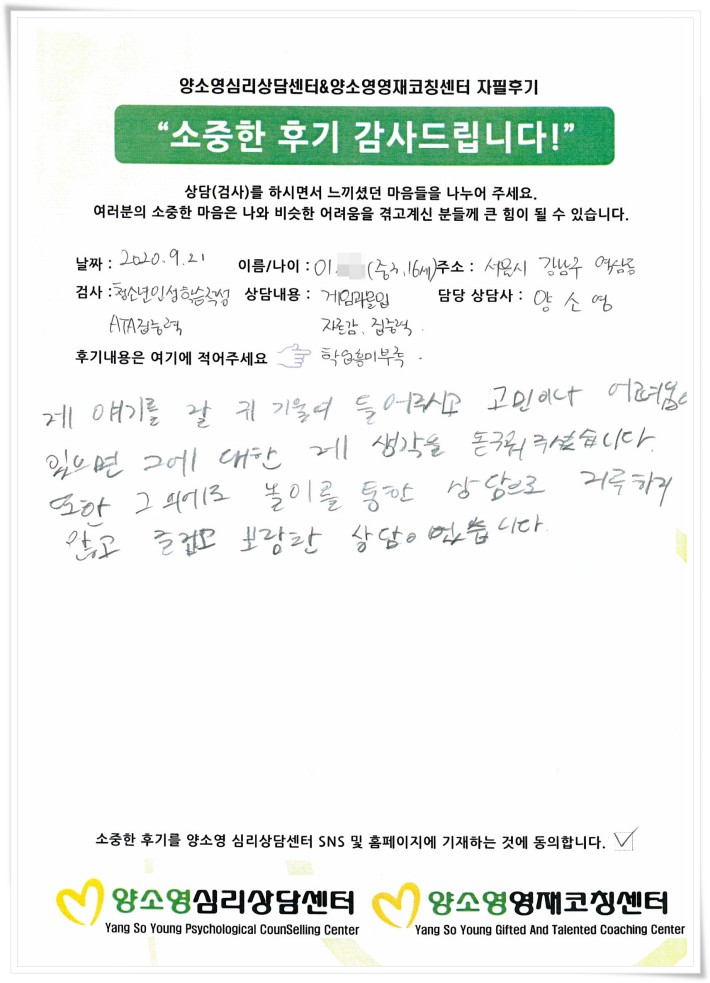 양소영심리상담센터&양소영영재코칭센터 자필후기
“소중한 후기 감사드립니다!”
상담(검사)를 하시면서 느끼셨던 마음들을 나누어 주세요.
여러분의 소중한 마음은 나와 비슷한 어려움을 겪고계신 분들께 큰 힘이 될 수 있습니다.
날짜 : 2020.9.21 이름/나이 : 이 (중3,16세) 주소 : 서울시 강남구 역삼동
검사 : 청소년인성학습적성 상담내용 : 게임과몰입 담당 상담사 : 양소영
ATA집중력 자존감, 집중력.
후기내용은 여기에 적어주세요 학업흥미부족.
제 얘기를 잘 귀 기울여 들어주시고 고민이나 어려움이
있으면 그에 대한 제 생각을 돋구워주셨습니다.
또한 그 외에도 놀이를 통한 상담으로 지루하지
않고 즐겁고 보람찬 상담이었습니다.
소중한 후기를 양소영 심리상담센터 SNS 및 홈페이지에 기재하는 것에 동의합니다.
양소영심리상담센터 양소영영재코칭센터
Yang So Young Psychological CounSelling Center Yang So Young Gifted And Talented Coaching Center